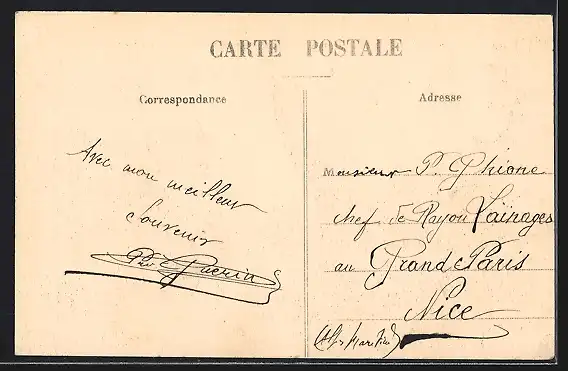 CARTE POSTALE
Correspondance
Adresse
Avec mon meilleur
Souvenir
Guerin
Monsieur P. Phione
chef de Rayon Lainages
au Grand Paris
Nice
(Alpes Maritimes)